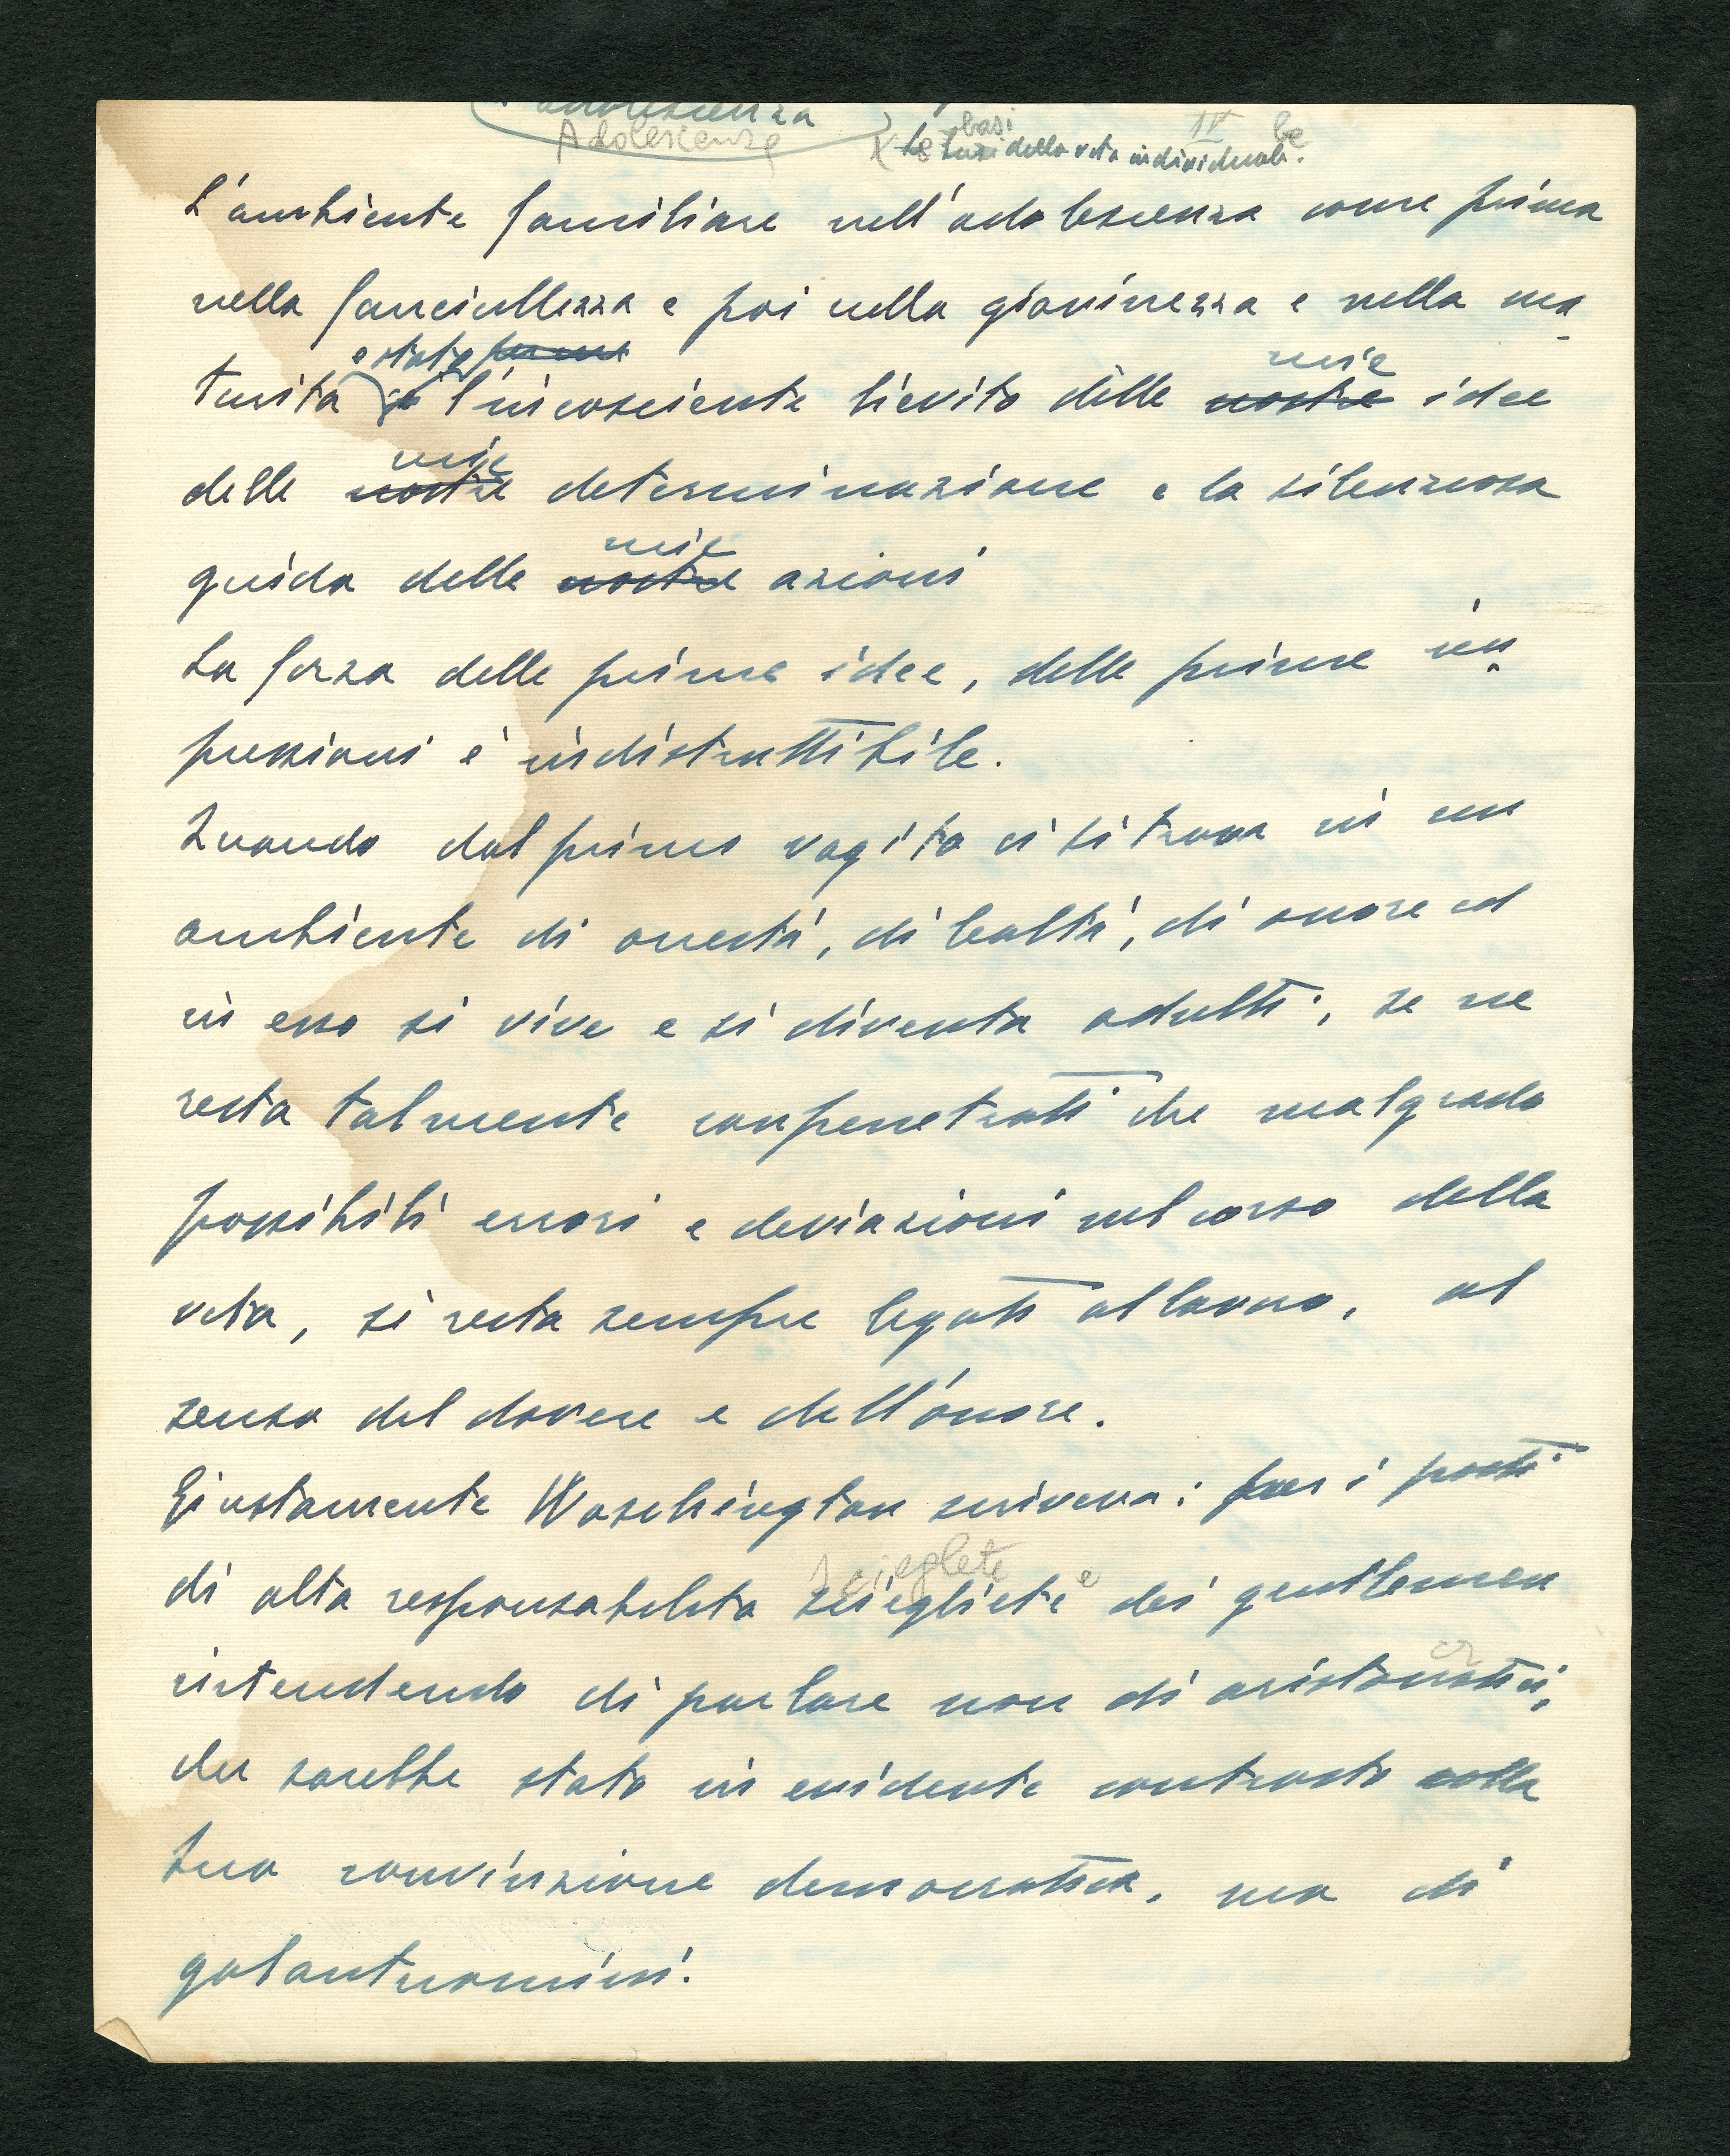 adolescenza
Adolescenza
basi IV le
X Le basi della vita individuale.
L'ambiente familiare nell'adolescenza come prima
nella fanciullezza e poi nella giovinezza e nella ma
è stato
turità l'incosciente lievito delle nostre mie idee
delle nostre mie determinazione e la silenziosa
guida delle nostre mie azioni
La forza delle prime idee, delle prime im
pressioni è indistruttibile.
Quando dal primo vagito ci si trova in un
ambiente di onestà, di lealtà, di onore ed
in esso si vive e si diventa adulti, se ne
resta talmente conpenetrati che malgrado
possibili errori e deviazioni nel corso della
vita, si resta sempre legati al lavoro, al
senso del dovere e dell'onore.
Giustamente Waschington scriveva: per i posti
Sciegliete
di alta responsabilita sciegliete dei gentlemen
cr
intendendo di parlare non di aristocratici,
che sarebbe stato in evidente contrasto colla
sua convinzione democratica, ma di
galantuomini.